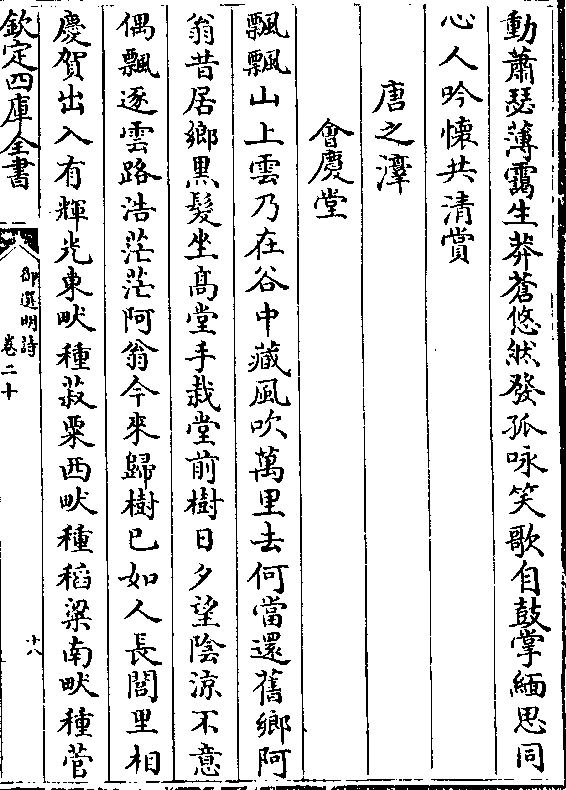 動蕭瑟薄靄生莽蒼悠然發孤咏笑歌自鼓掌緬思同
心人吟懷共清賞
唐之淳
會慶堂
飄飄山上雲乃在谷中藏風吹萬里去何當還舊鄉阿
翁昔居鄉黒髪坐髙堂手栽堂前樹日夕望陰涼不意
偶飄逐雲路浩茫茫阿翁今來歸樹已如人長閭里相
慶賀出入有輝光東畎種菽粟西畎種稻粱南畎種菅
欽定四庫全書
御選明詩
卷二十
十八